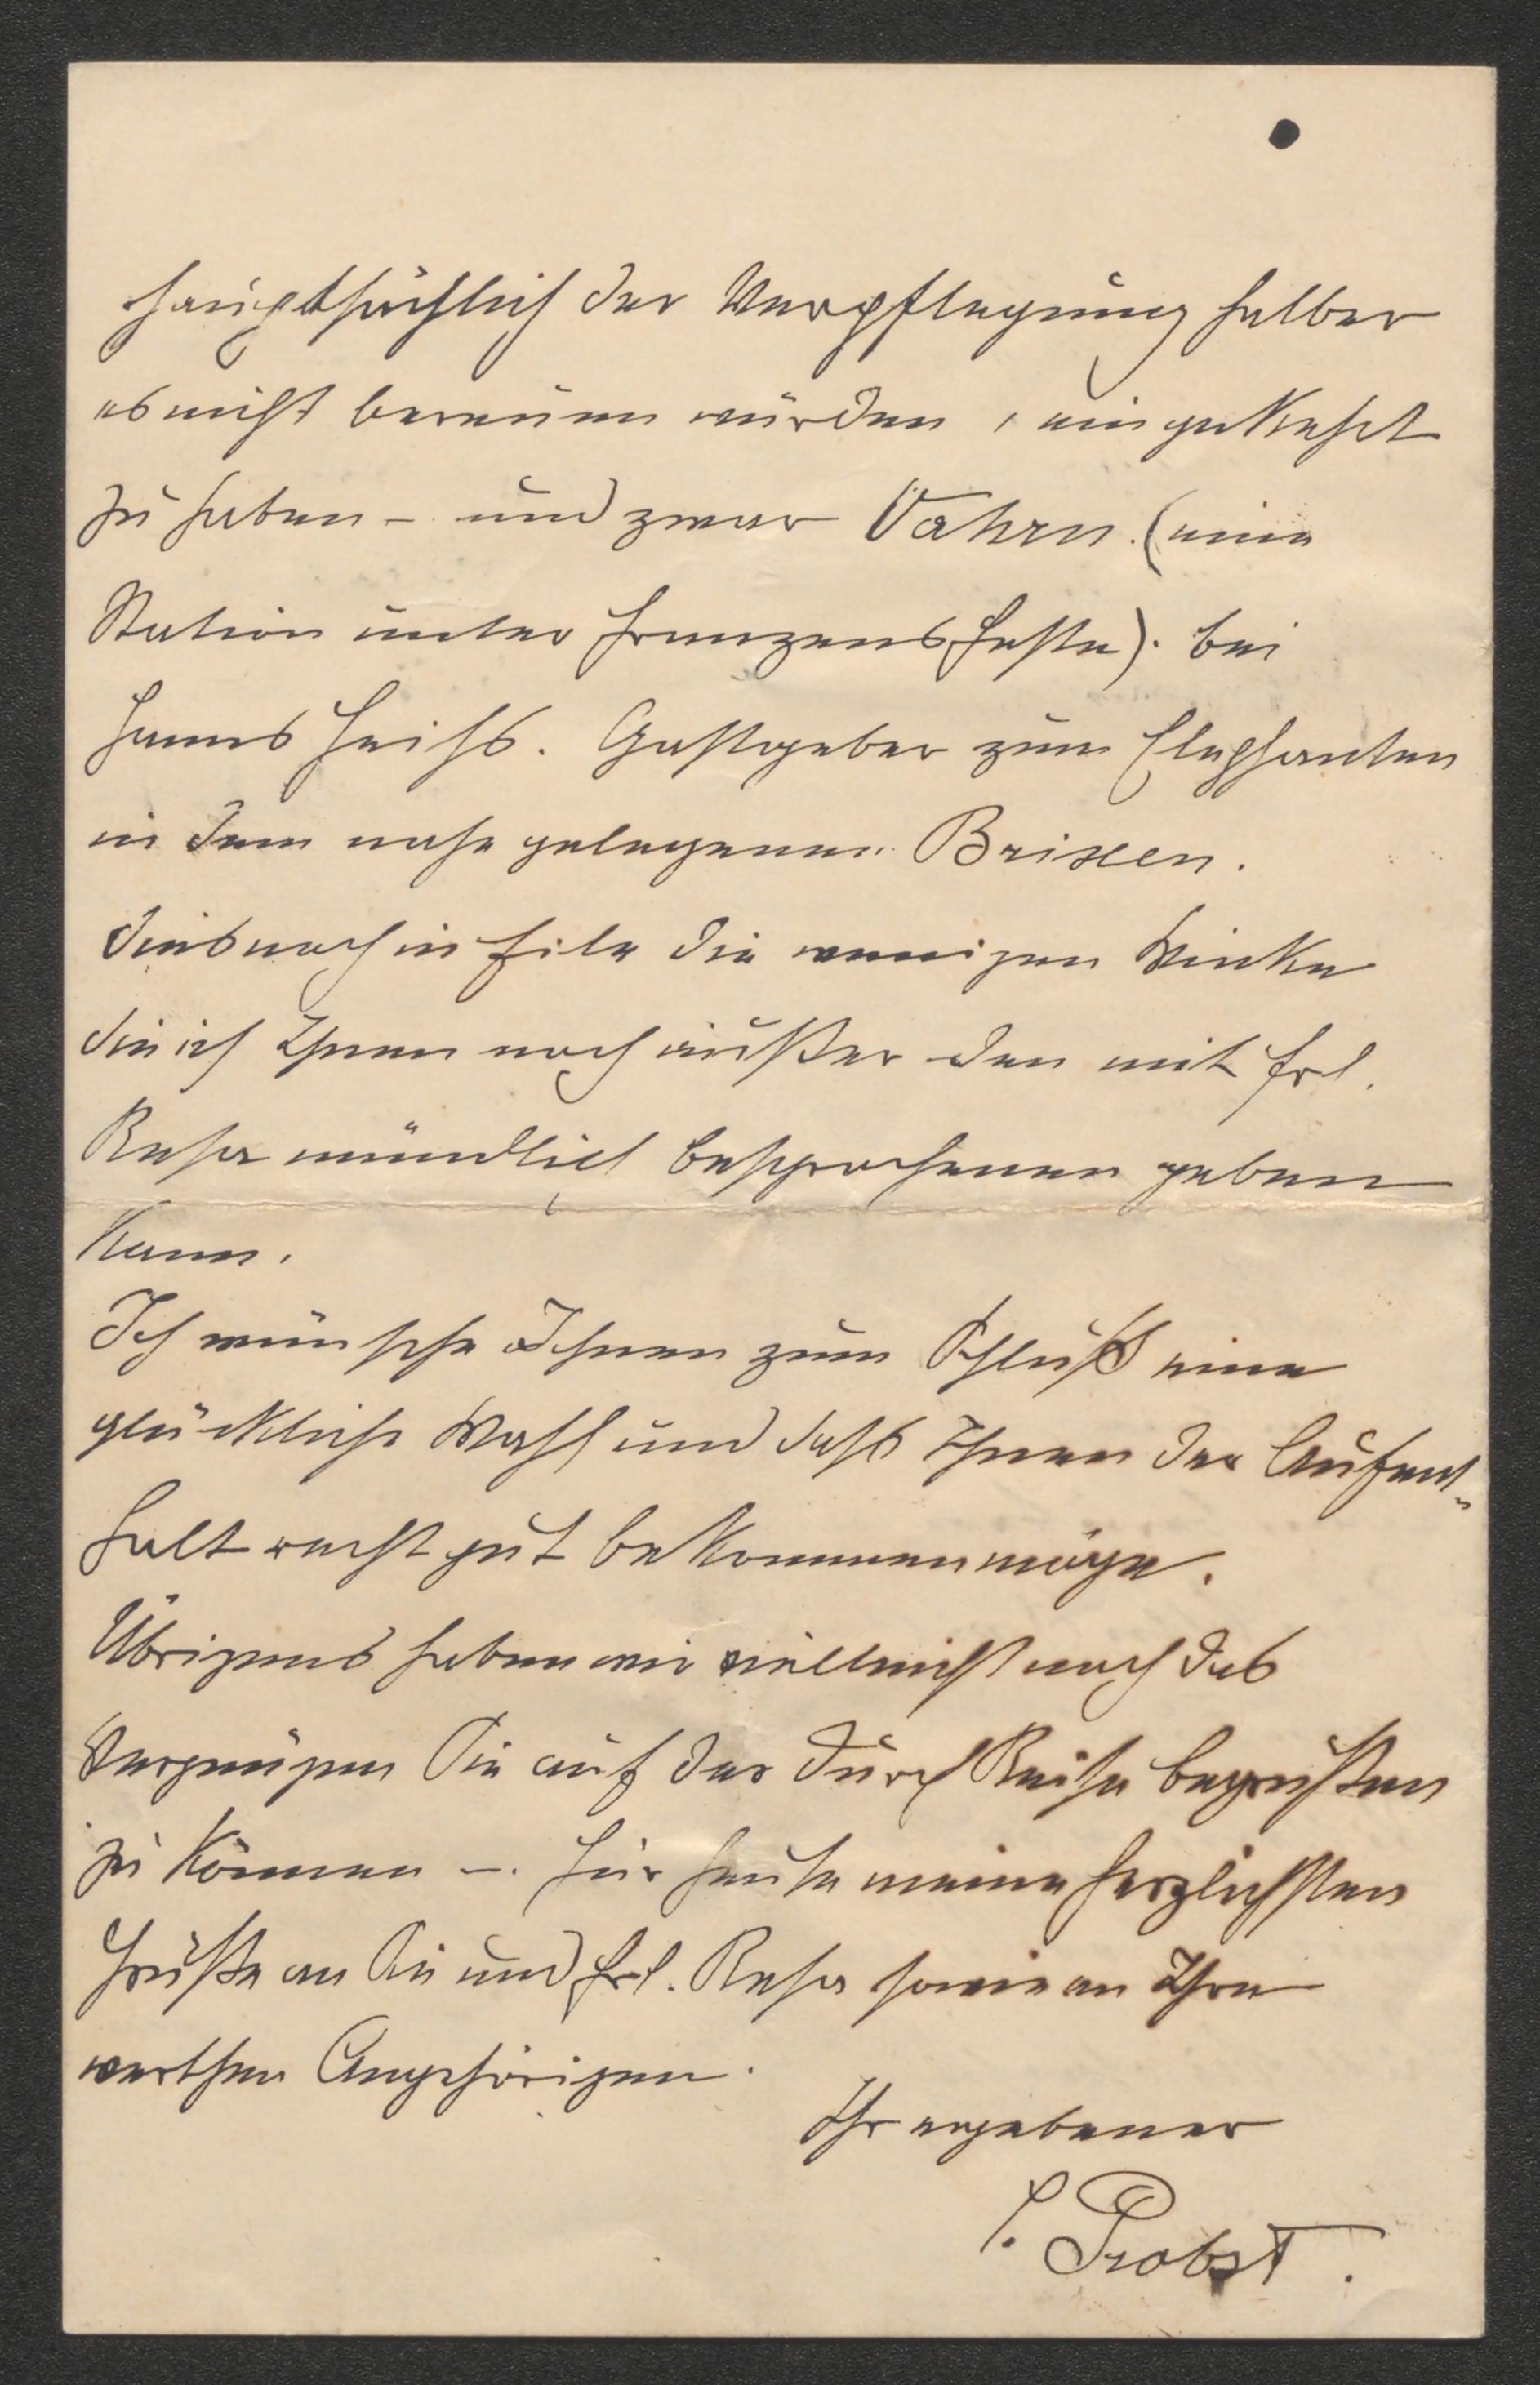 hauptsächlich der Verpflegung halber
es nicht bereuen würden, eingekehrt
zu haben – und zwar Vahrn. (eine
Station unter Franzensfeste). bei
Hanns Heiss. Gastgeber zum Elephanten
in dem nahe gelegenen Brixen.
Dies noch in Eile die wenigen Winke
die ich Ihnen noch außer den mit Frl.
Resa mündlich besprochenen geben
kann.
Ich wünsche Ihnen zum Schluß eine
glückliche Wahl und dass Ihnen der Aufent-
halt recht gut bekommen möge.
Übrigens haben wir vielleicht noch das
Vergnügen Sie auf der Durch Reise begrüßen
zu können –. Für heute meine herzlichsten
Grüße an Sie und Frl. Resa sowie an Ihre
werthen Angehörigen.
Ihr ergebener
Probst.